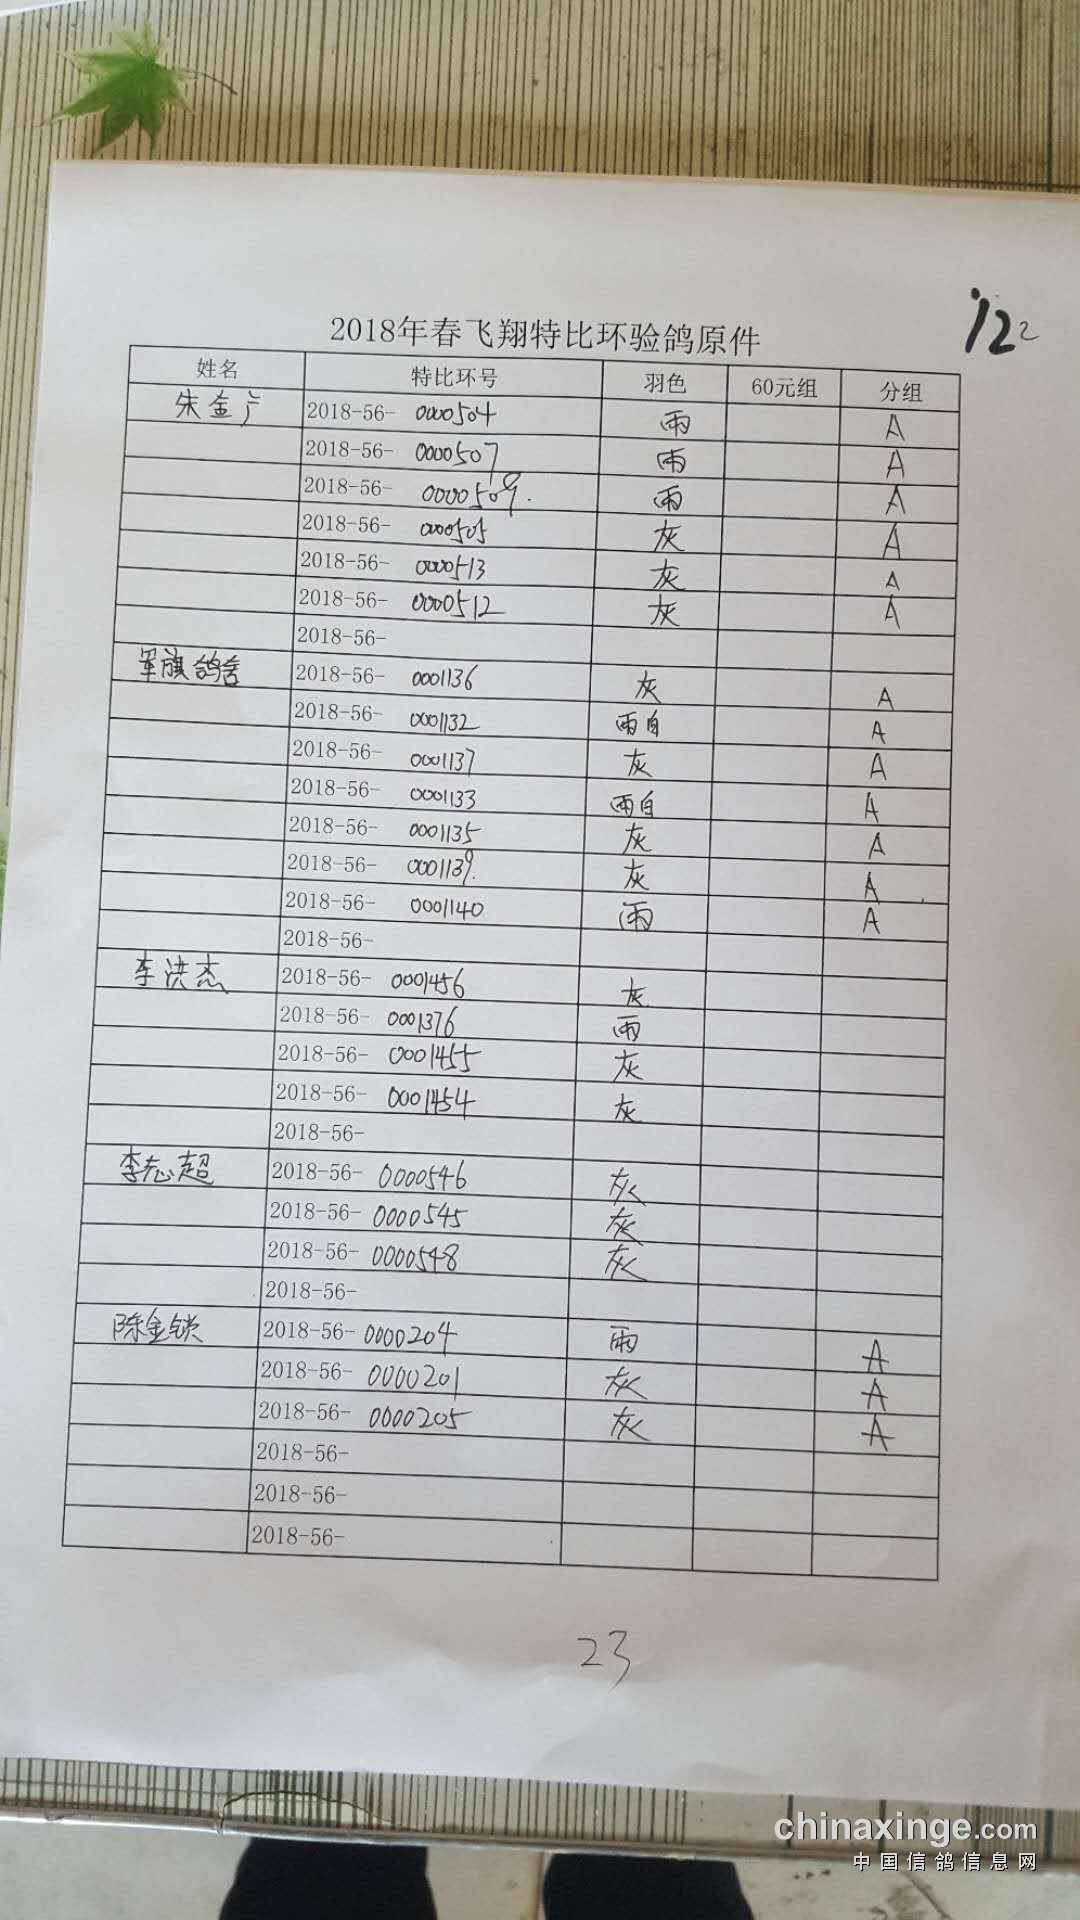 122
2018年春飞翔特比环验鸽原件
姓名 特比环号 羽色 60元组 分组
朱金广 2018-56- 0000504 雨 A
2018-56- 0000507 雨 A
2018-56- 0000509. 雨 A
2018-56- 0000505 灰 A
2018-56- 0000513 灰 A
2018-56- 0000512 灰 A
2018-56-
军旗鸽舍 2018-56- 0001136 灰 A
2018-56- 0001132 雨白 A
2018-56- 0001137 灰 A
2018-56- 0001133 雨白 A
2018-56- 0001135 灰 A
2018-56- 0001139. 灰 A
2018-56- 0001140 雨 A
2018-56-
李洪杰 2018-56- 0001456 灰
2018-56- 0001376 雨
2018-56- 0001455 灰
2018-56- 0001454 灰
2018-56-
李志超 2018-56- 0000546 灰
2018-56- 0000545 灰
2018-56- 0000548 灰
2018-56-
陈金锁 2018-56- 0000204 雨 A
2018-56- 0000201 灰 A
2018-56- 0000205 灰 A
2018-56-
2018-56-
2018-56-
23
chinaxinge.com
中国信鸽信息网